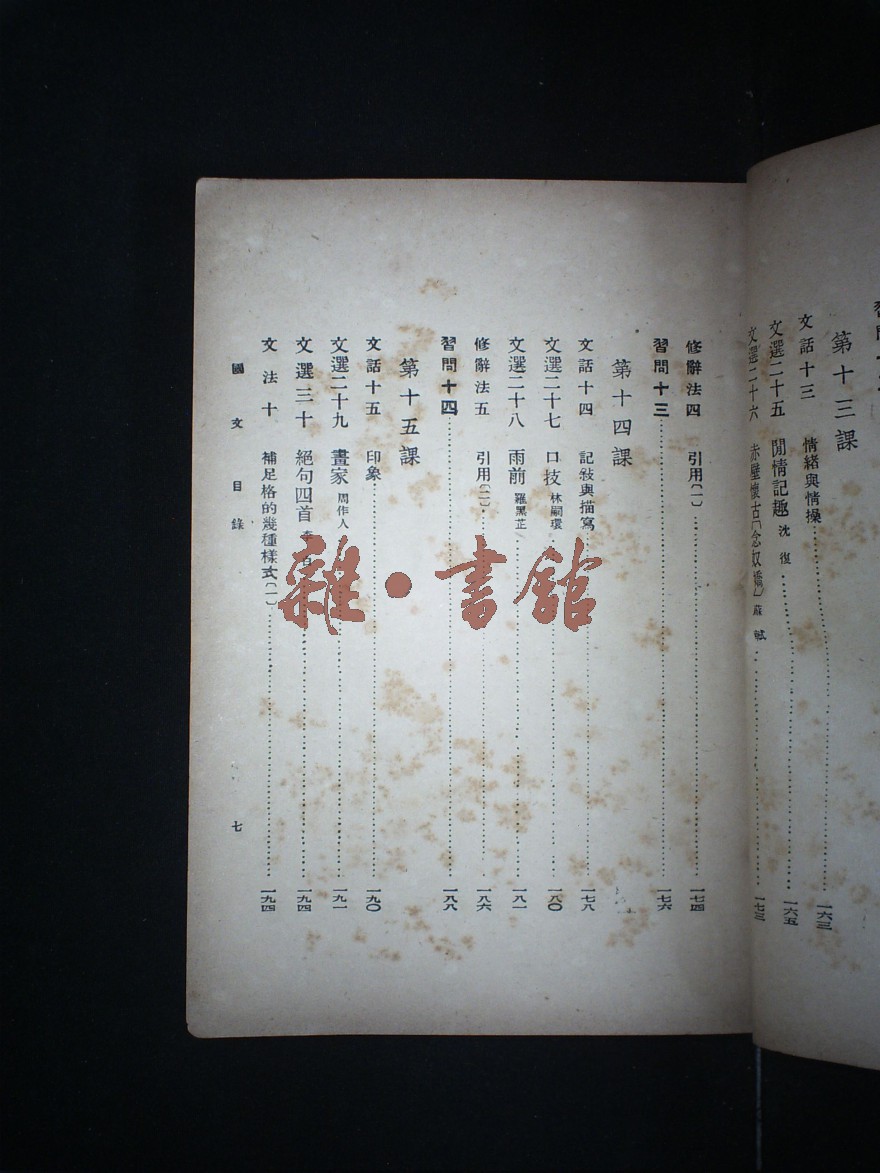 第十三課
文話十三 情緒與情操 一六三
文選二十五 閒情記趣 沈復 一六五
文選二十六 赤壁懷古(念奴嬌) 蘇軾 一七三
修辭法四 引用(一) 一七四
習問十三 一七六
第十四課
文話十四 記敍與描寫 一七八
文選二十七 口技 林嗣環 一八〇
文選二十八 雨前 羅黑芷 一八一
修辭法五 引用(二) 一八六
習問十四 一八八
第十五課
文話十五 印象 一九〇
文選二十九 畫家 周作人 一九一
文選三十 絕句四首 一九四
文法十 補足格的幾種樣式(一) 一九四
國文目錄 七
雜·書館